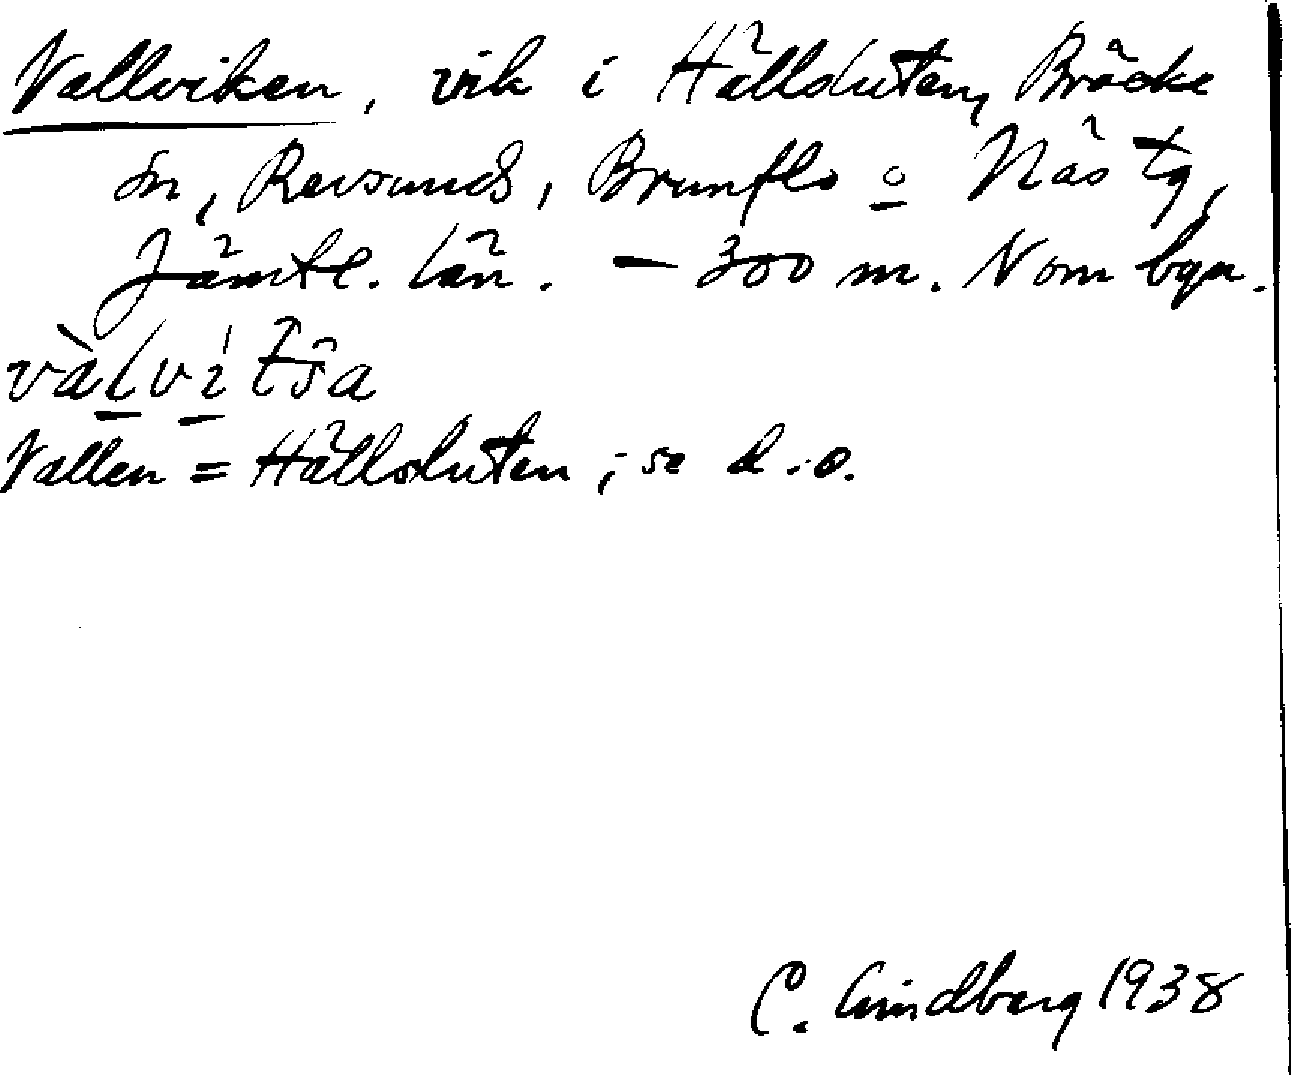 Vallviken, vik i Hällsluten, Bräcke
sn, Revsunds, Brunflo o Näs tg,
Jämtl. län. – 300 m. N om byn.
vàlvitša
Vallen = Hällsluten; se d. o.
C. Lindberg 1938